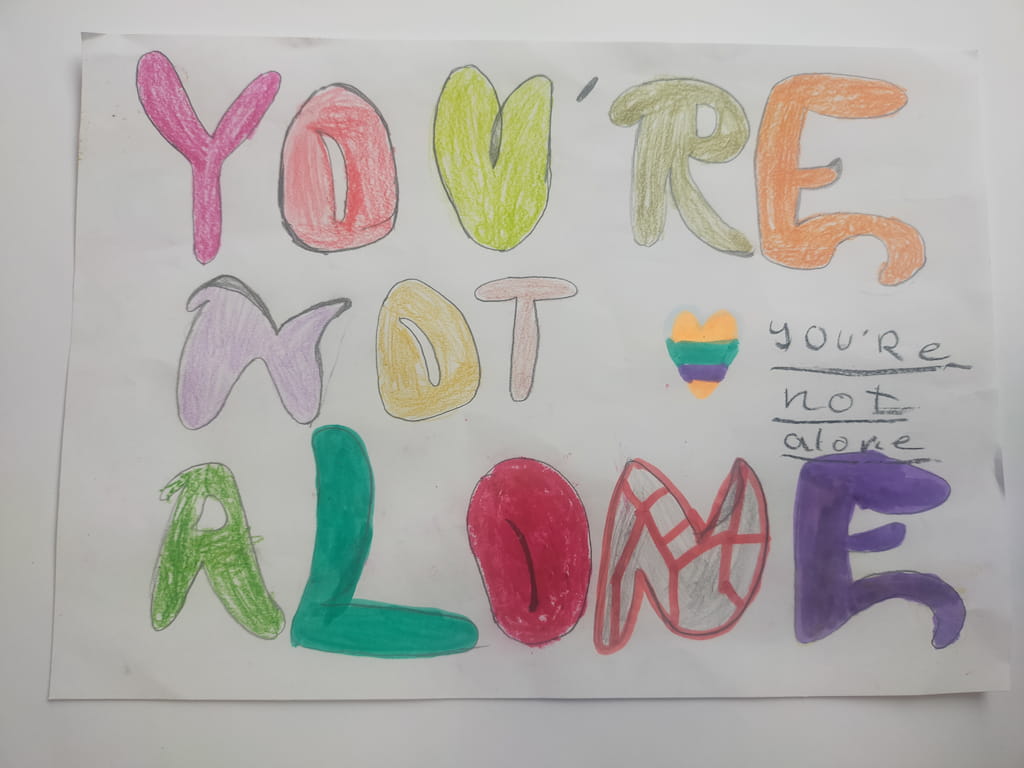 YOU'RE
NOT
YOU'Re
not
alone
ALONE